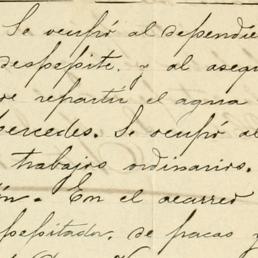 Se ocupó al dependie
despepite. y al asegu
re repartir el agua
ercedes. Se ocupó al
trabajos ordinarios.
ón. En el acarreo
pepitador, de pacas y